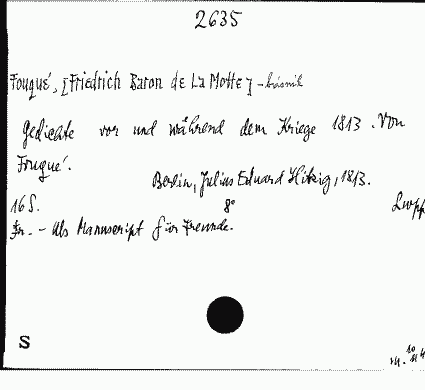 2635
Fouqué, [Friedrich Baron de La Motte] - básník
Gedichte vor und während dem Kriege 1813. Von
Fouqué.
Berlin, Julius Eduard Hitzig, 1813.
16 S. 8°
- Als Manuscript für Freunde.
S